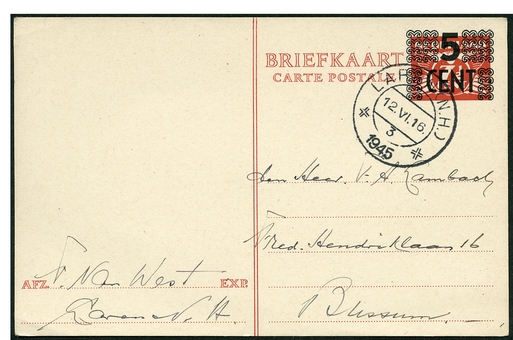 5
CENT
BRIEFKAART
CARTE POSTALE
LAREN (N.H.)
12.VI.16.
3
1945
den Heer. V. A. Lambach
Fred. Hendriklaan 16
Bussum.
AFZ. F. Van West EXP.
Laren N. H.